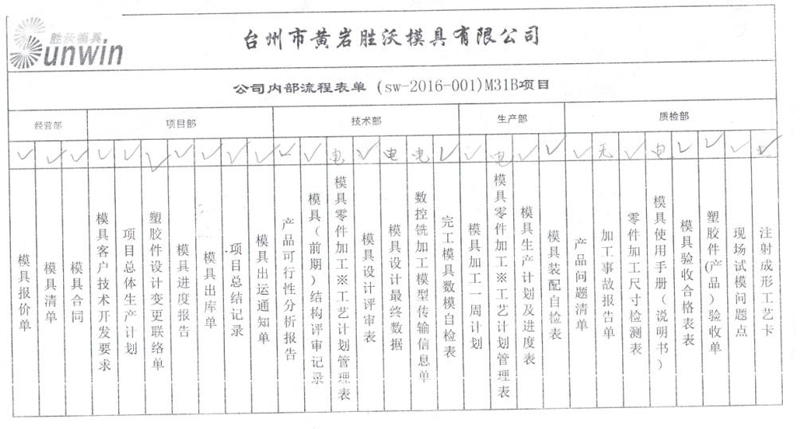 胜沃模具
Sunwin
台州市黄岩胜沃模具有限公司
公司内部流程表单 (sw-2016-001)M31B项目
经营部 项目部 技术部 生产部 质检部
✓ ✓ ✓ ✓ ✓ ✓ ✓ ✓ ✓ ✓ ✓ ✓ 电 ✓ 电 电 ✓ ✓ 电 ✓ ✓ ✓ 无 ✓ 电 ✓ ✓ ✓ ✓
模具报价单
模具清单
模具合同
模具客户技术开发要求
项目总体生产计划
塑胶件设计变更联络单
模具进度报告
模具出库单
项目总结记录
模具出运通知单
产品可行性分析报告
模具（前期）结构评审记录
模具零件加工※工艺计划管理表
模具设计评审表
模具设计最终数据
数控铣加工模型传输信息单
完工模具数模自检表
模具加工一周计划
模具零件加工※工艺计划管理表
模具生产计划及进度表
模具装配自检表
产品问题清单
加工事故报告单
零件加工尺寸检测表
模具使用手册（说明书）
模具验收合格表表
塑胶件(产品)验收单
现场试模问题点
注射成形工艺卡